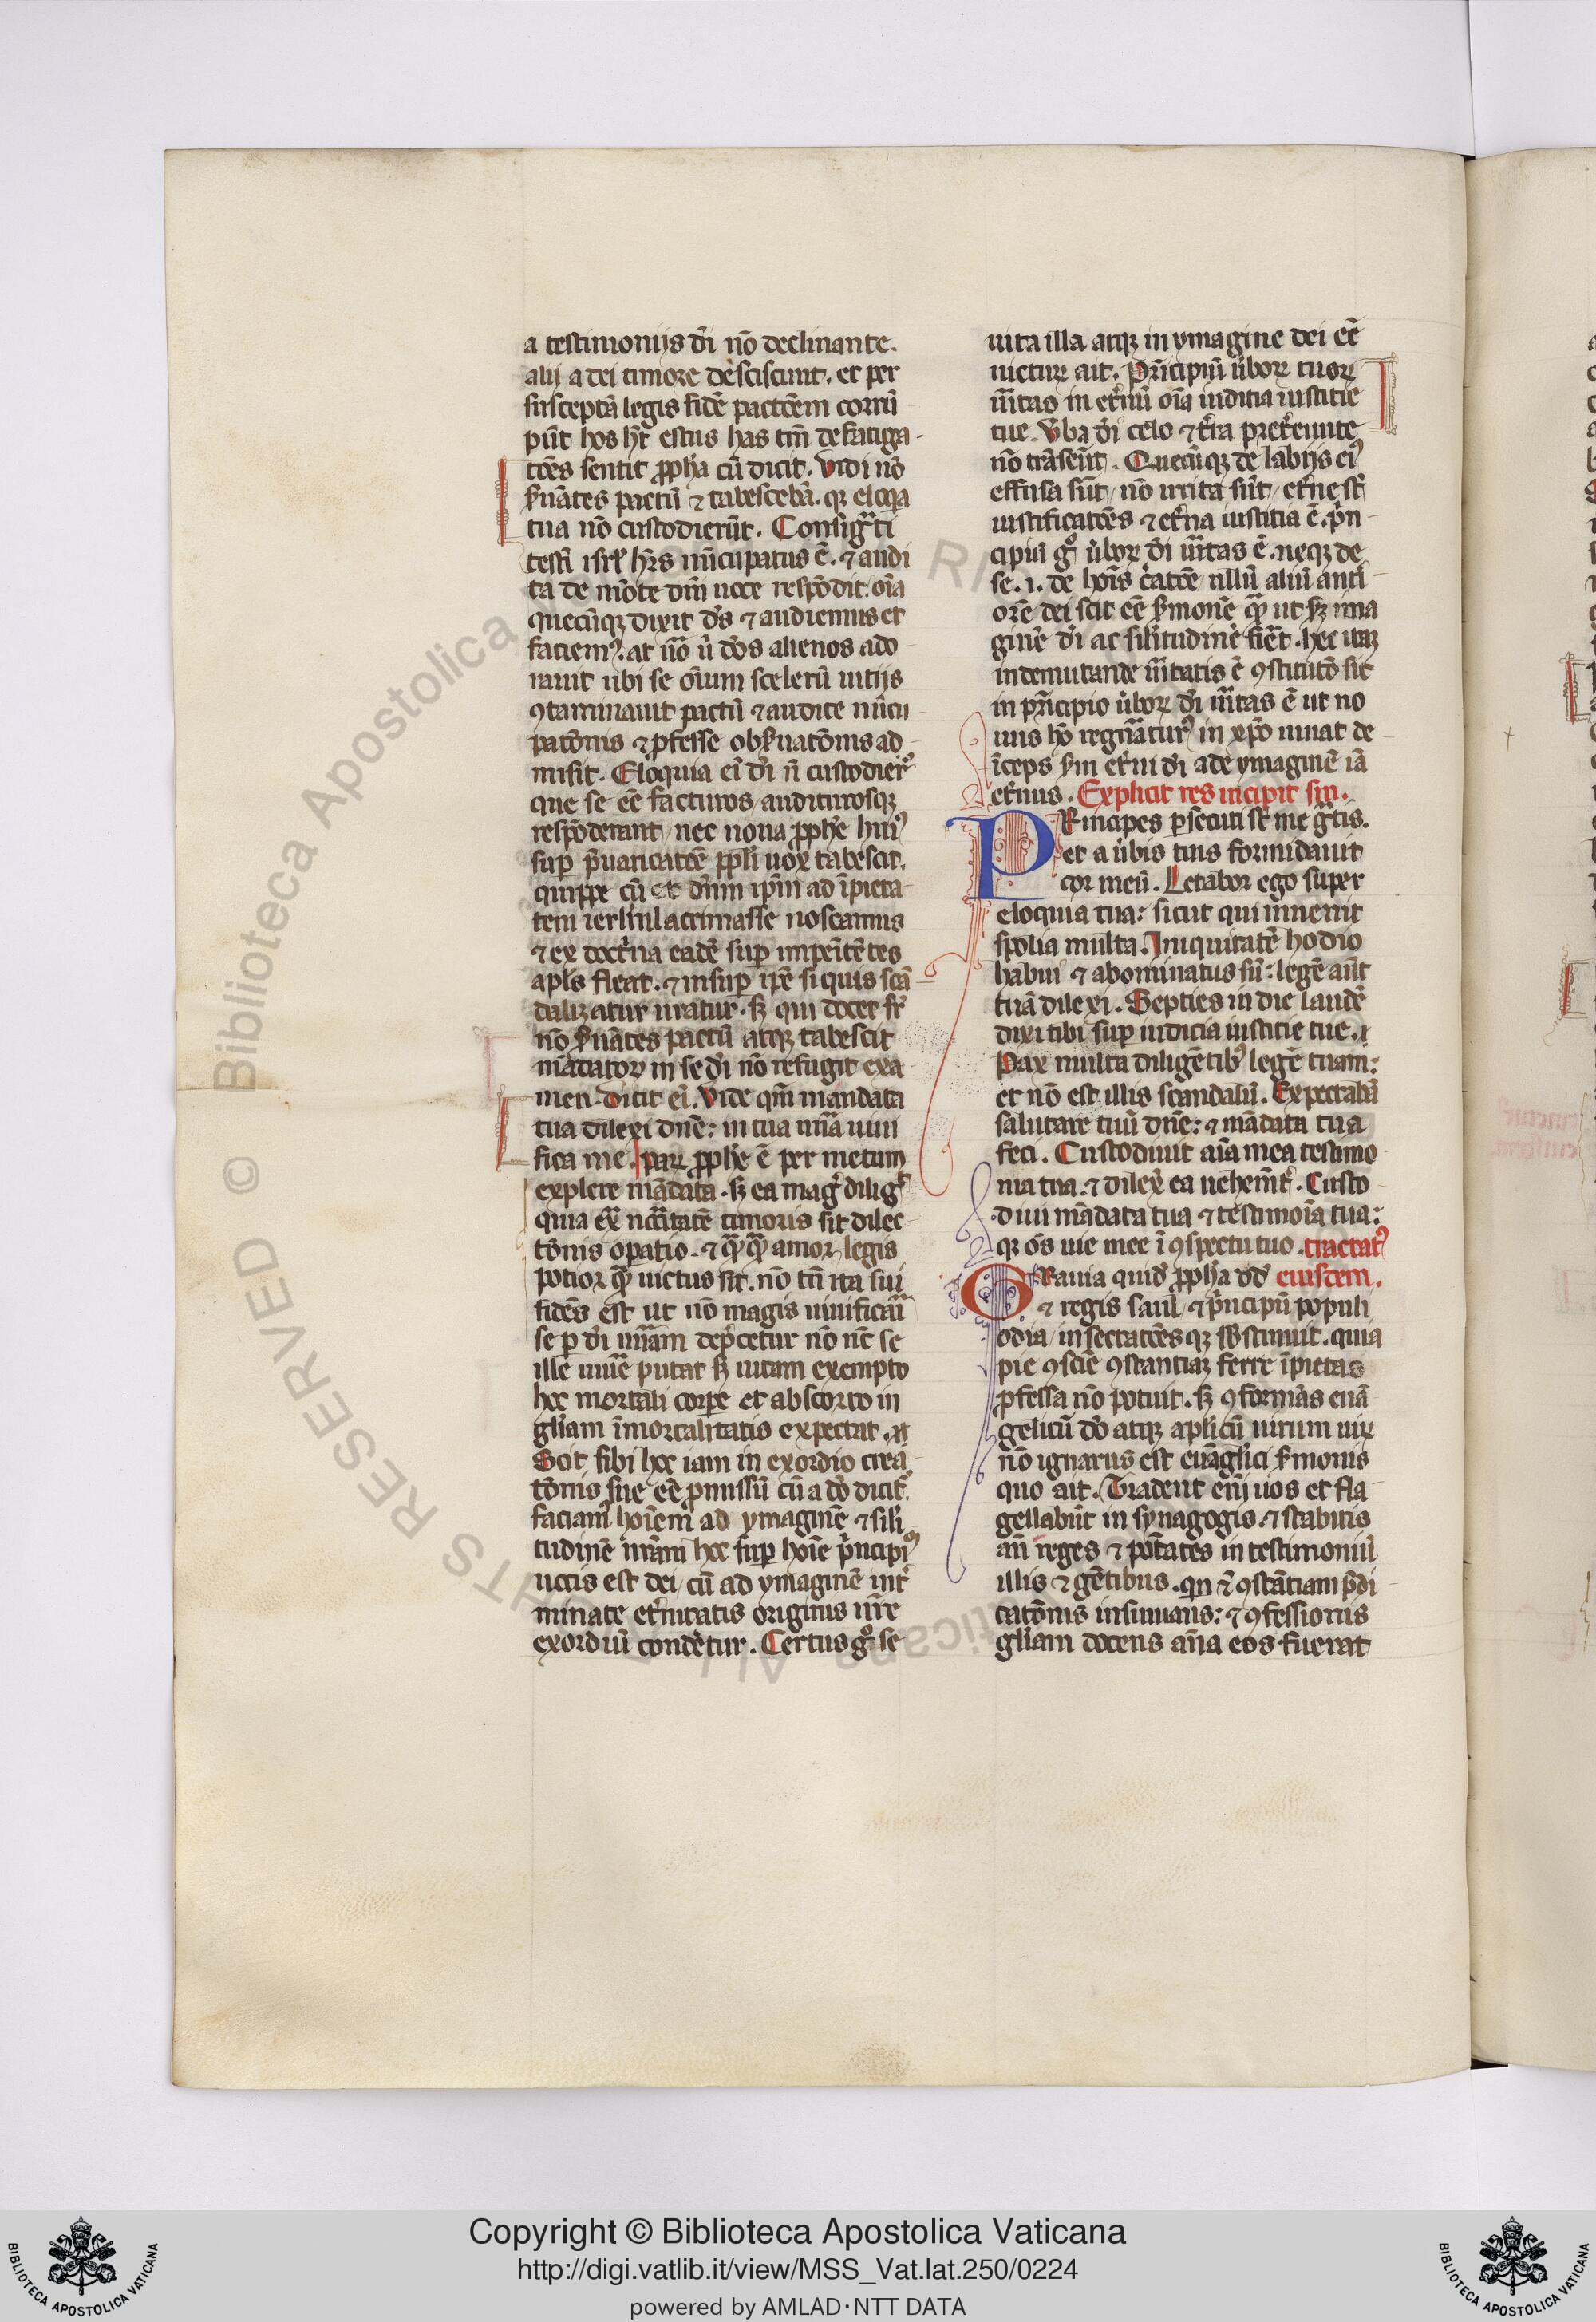 a testimoniis dī nō declinante.
alij a dei timore desciscunt. et per
susceptā legis fidē pactōem corrū
pūt hos hr̄ estus has tm̄ defatiga
tōes sentit ꝓph̄a cū dicit. Vidi nō
ẜuātes pactū ⁊ tabescebā. qꝛ eloq̄a
tua nō custodierūt.
ta de mōte dn̄i uoce respōdit. oīa
quecūqꝫ dixit dn̄s ⁊ audiemus et
faciemꝰ. at uō ū dōs alienos ado
rauit ubi se oīum scelerū uitijs
ꝯtaminauit pactū ⁊ audite nūcu
patōnis ⁊ ꝓfesse obẜuatōnis ad
misit. Eloquia eī dī n̄ custodierꝰ
que se eē facturos audituros qꝫ
respōderant nec noua ꝓph̄e huiꝰ
suꝑ p̄uaricatōe ppl̄i uox tabescit.
quippe cū et dn̄im ip̄m ad īpieta
tem ierl̄m lacrimasse noscamus
⁊ ex doctīna eadē suꝑ impeītētes
apl̄s fleat. ⁊ insuꝑ ip̄e si quis scā
dalizatur uratur. sꝫ qui docet sr̄
nō ẜuātes pactū atqꝫ tabescit
mādatoꝝ in se dī nō refugit exa
men. dicit eī. Vide qm̄ mandata
tua dilexi dn̄e: in tua mīa uiui
fica me. parꝝ ꝓph̄e ē per metum
explere mādata. sꝫ ea magꝭ diligꝭ
quia ex nccītatē timoris sit dilec
tōnis operatio. ⁊ qͣꝫqͣꝫ amor legis
potior qͣꝫ uictus sit. nō tn̄ ita sui
fidēs est ut nō magis uiuificaī
se ꝑ dī mīam dep̄cetur nō nc̄ se
ille uiuē putat sꝫ uitam exempto
hoc mortali corpe et absorto in
gl̄iam īmortalitatis expectat.
Scit sibi hoc iam in exordio creā
tōnis sue eē ꝓmissū cū a dō dicitꝰ.
faciamꝰ hoīem ad ymaginē ⁊ sil̄i
tudinē nr̄am hec suꝑ hoīe p̄ncipiꝰ
uocis est dei, cū ad ymaginē int̄
minate et̄nitatis originis nr̄e
exordiū condētur. Certus gͦ se
uita illa atqꝫ in ymagine dei eē
uicturꝝ ait. Pn̄cipiū ūboꝝ tuoꝝ
ūitas in et̄nū oīa iuditia iustitie
tue. Vba dī celo ⁊ t̄ra pret̄eunte
nō trāseūt. Quecūqꝫ de labijs eiꝰ
effusa sūt, nō irrita sūt, et̄ne st̄
iustificatōes ⁊ et̄na iustitia ē. p̄n
cipiū gͦ ūboꝝ dī ūitas ē. neqꝫ de
se. i. de hoīs c̄atōe ullū aliū anti
orē dei scit eē ẜmonē qͣꝫ ut sꝫ ima
ginē dī ac sil̄itudinē fiēt. hec itaqꝫ
indemutande ūitatis ē ꝯstitutō sic
in pn̄cipio ūboꝝ dī ūitas ē ut no
uus hō regnāturꝰ in xp̄o uiuat de
īceps ẜm et̄ni dī ade ymaginē iā
et̄nus. Explicit res incipit sin.
PRincipes ꝑsecuti st̄ me gͣtis.
et a ūbis tuis formidauit
cor meū. Letabor ego super
eloquia tua: sicut qui inuenit
spolia multa. Iniquitatē hodio
habui ⁊ abominatus sū: legē aūt
tuā dilexi. Septies in die laudē
dixi tibi suꝑ iudicia iustitie tue.
Pax multa diligētibꝰ legē tuam:
et nō est illis scandalū. Expectabā
salutare tuū dn̄e: ⁊ mādata tua
feci. Custodiuit aīa mea testimo
nia tua. ⁊ dilexꝭ ea uehemt̄. Custo
diui mādata tua ⁊ testimoīa tua:
qꝛ oēs uie mee ī ꝯspectu tuo. tractatꝰ
GRauia quidē ꝓph̄a dd̄ eiusdem.
⁊ regis saul ⁊ p̄ncipū populi
odia, insectatōesqꝫ sb̄stinuit. quia
pie ꝯsciē ꝯstantiaꝫ ferre īpietas
ꝓfessa nō potuit. sꝫ ꝯformās euā
gelicū dō atqꝫ aplicū uirum uirꝝ
nō ignarus est euāgl̄ici ẜmonis
quo ait. Tradent enī uos et fla
gellabūt in synagogis. ⁊ stabitis
an̄ reges ⁊ potātes in testimoniū
illis ⁊ gētibus. qn̄ ⁊ ꝯstātiam p̄di
catōnis insinuans: ⁊ ꝯfessionis
gl̄iam docens an̄a eos fuerat
© Biblioteca Apostolica Vaticana
ALL RIGHTS RESERVED
Copyright © Biblioteca Apostolica Vaticana
http://digi.vatlib.it/view/MSS_Vat.lat.250/0224
powered by AMLAD·NTT DATA
BIBLIOTECA APOSTOLICA VATICANA
BIBLIOTECA APOSTOLICA VATICANA